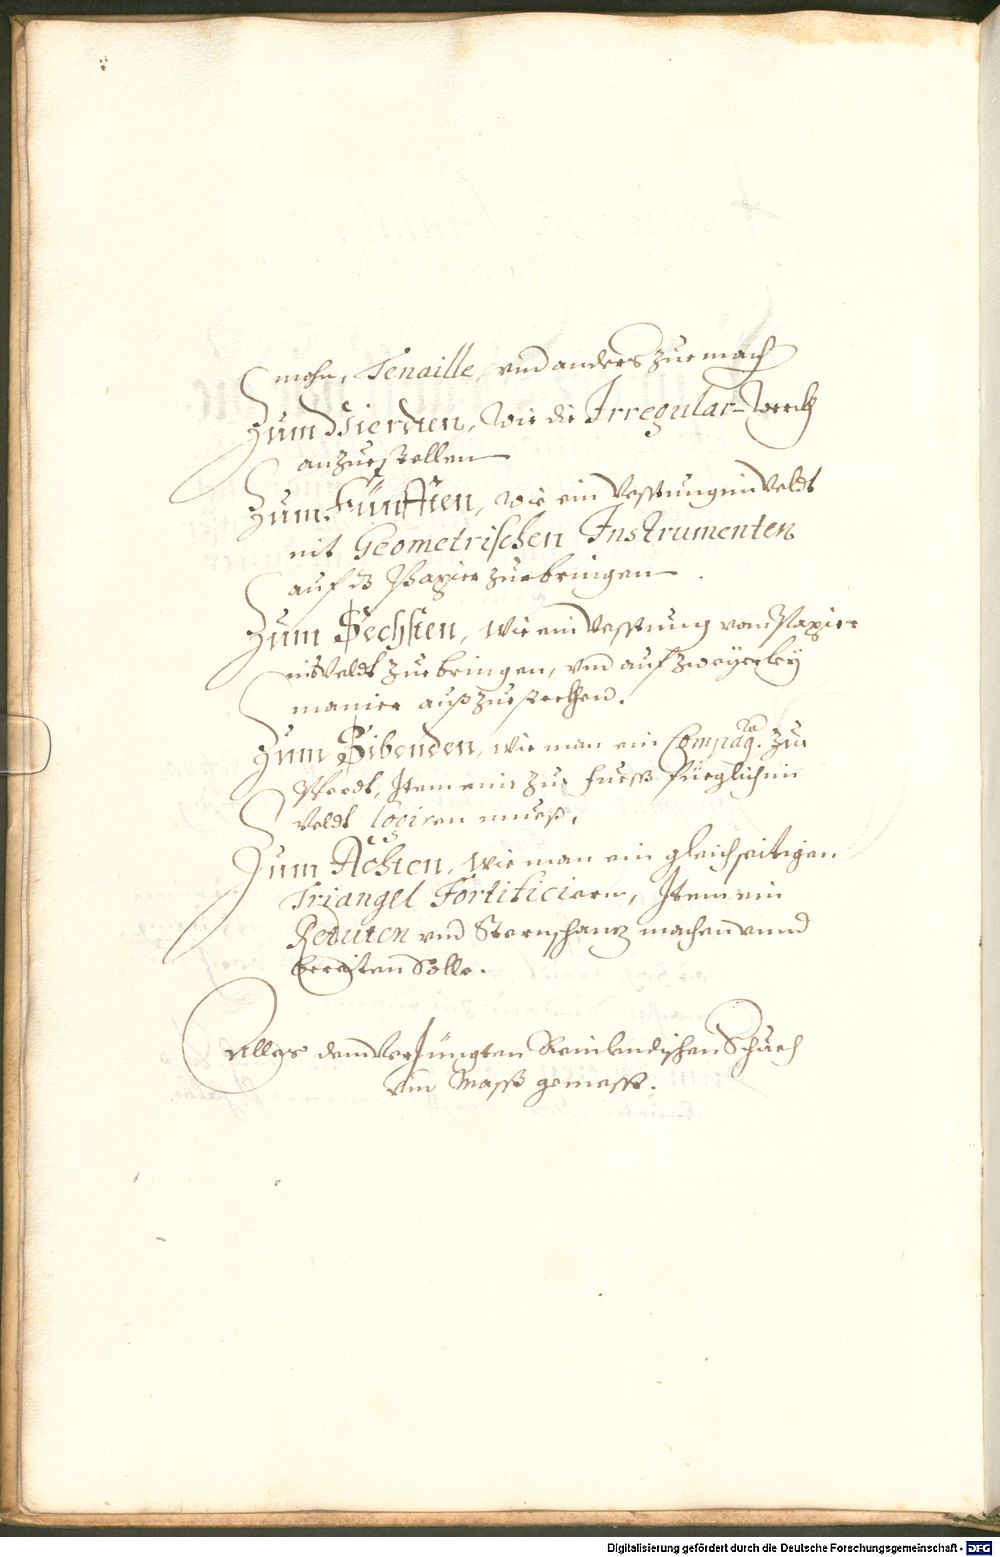 mohn, Tenaille, vnd anders zue mach
Zum Vierdten, Wie die Irregular-Werckh
anzuestellen
Zum Fünfften, wie ein Vesstung im Veldt
mit Geometrischen Instrumenten
auf dz Papier zuebringen.
Zum Sechsten, Wie ein Vesstung vom Papier
ins Veldt zuebringen, vnd auf zweyerley
manier außzuestekhen.
Zum Sibenden, wie man ein Compag. zue
Pferdt, Item eine zue fueß füeglich im
Veldt logiren mueß,
Zum Achten, Wie man ein gleichseitigen
Triangel Fortificiern, Item ein
Reduten vnd Sternschantz machen vnnd
bereiten Solle.
Alles dem Verjüngten Reinlendischen Schuech
vnd Masß gemesß.
Digitalisierung gefördert durch die Deutsche Forschungsgemeinschaft - DFG